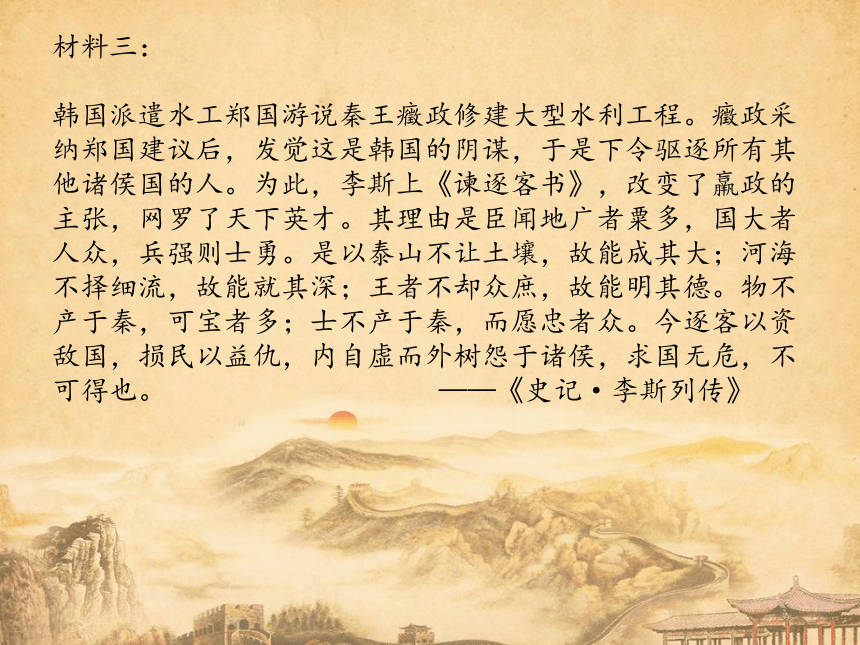 材料三：
韩国派遣水工郑国游说秦王癥政修建大型水利工程。癥政采
纳郑国建议后，发觉这是韩国的阴谋，于是下令驱逐所有其
他诸侯国的人。为此，李斯上《谏逐客书》，改变了羸政的
主张，网罗了天下英才。其理由是臣闻地广者粟多，国大者
人众，兵强则士勇。是以泰山不让土壤，故能成其大；河海
不择细流，故能就其深；王者不却众庶，故能明其德。物不
产于秦，可宝者多；士不产于秦，而愿忠者众。今逐客以资
敌国，损民以益仇，内自虚而外树怨于诸侯，求国无危，不
可得也。 ——《史记·李斯列传》